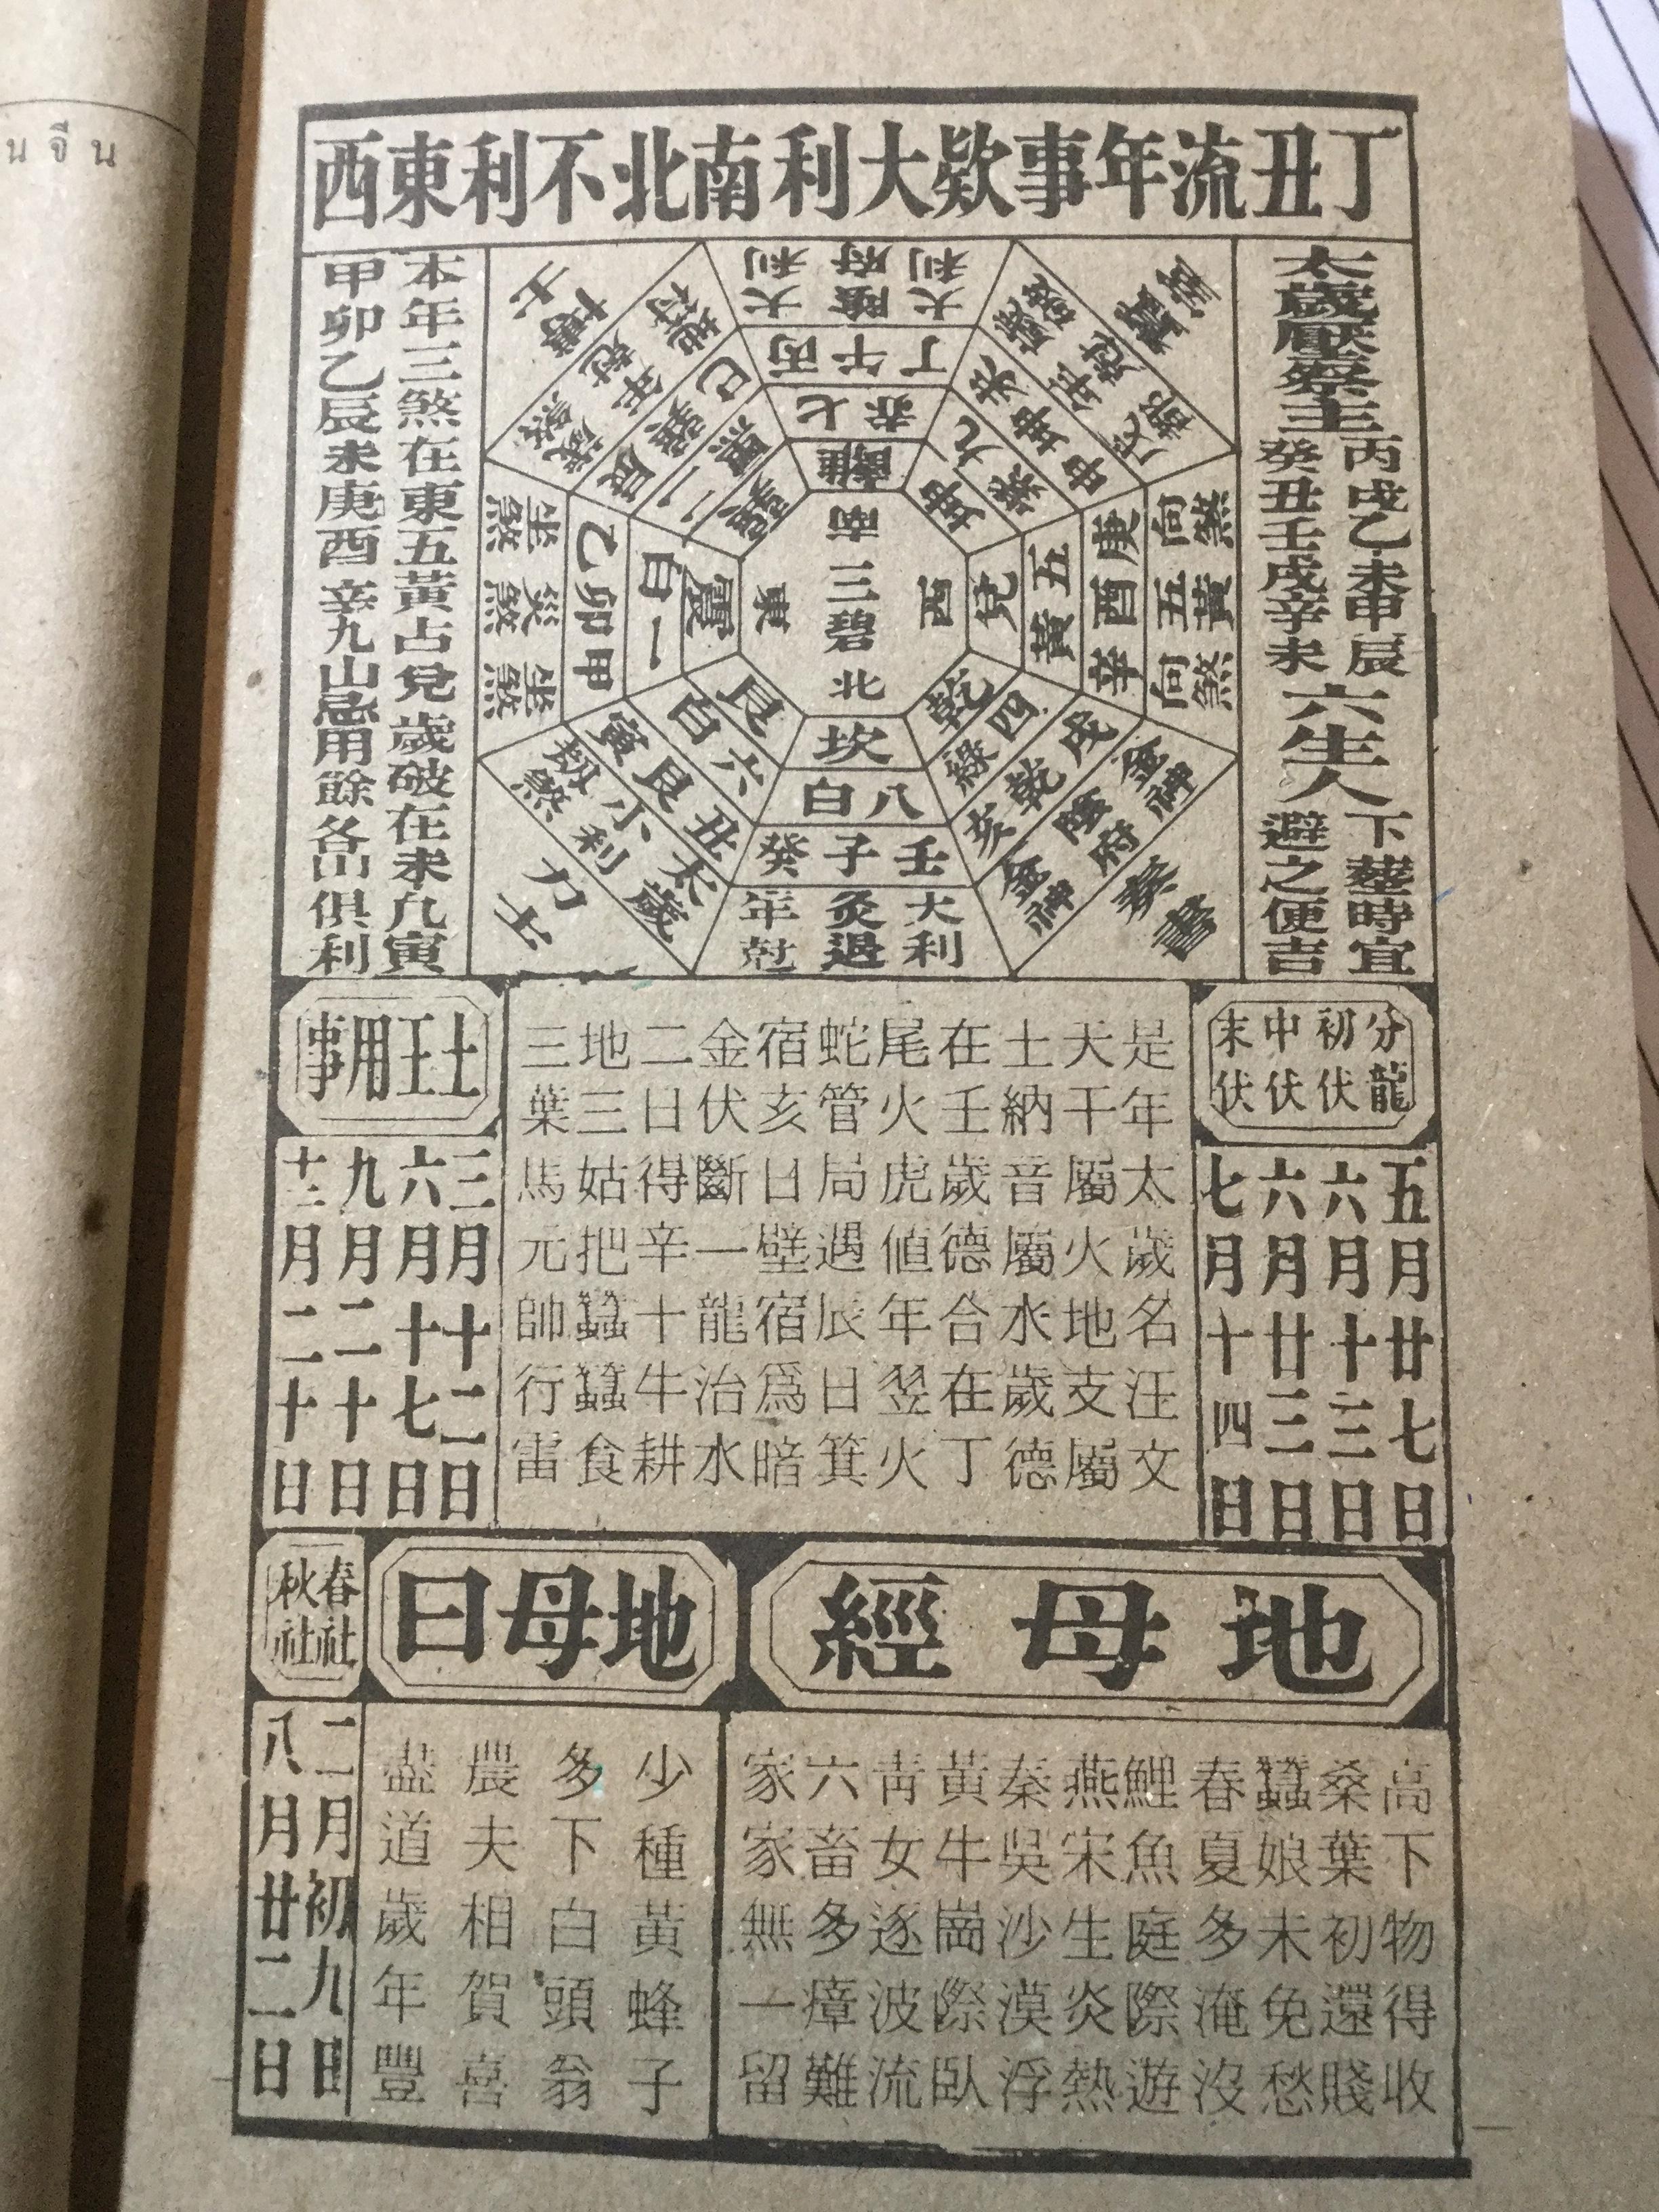 นจีน
丁丑流年事欵大利南北不利東西
太歲壓祭主
丙戌乙未甲辰
癸丑壬戌辛未
六生人
下塟時宜
避之便吉
本年三煞在東五黃占兌歲破在未凢寅
甲卯乙辰未庚酉辛九山忌用餘各山俱利
大利
陰府
大利
丁午丙
七赤
離
南
歲破
年尅
戊都
蠶室
未坤申
九紫
坤
向煞
五黃
向煞
庚酉辛
五黃
兌
西
金神
陰府
金神
奏書
戌乾亥
四綠
乾
大利
灸退
年尅
壬子癸
八白
坎
北
太歲
小利
劫煞
力士
丑艮寅
六白
艮
坐煞
災煞
坐煞
甲卯乙
一白
震
東
歲煞
年尅
博士
辰巽巳
二黑
巽
三碧
分龍
初伏
中伏
末伏
五月廿七日
六月十三日
六月廿三日
七月十四日
是年太歲名汪文
天干屬火地支屬
土納音屬水歲德
在壬歲德合在丁
尾火虎值年翌火
蛇管局遇辰日箕
宿亥日壁宿爲暗
金伏斷一龍治水
二日得辛十牛耕
地三姑把蠶蠶食
三葉馬元帥行雷
土王用事
三月十二日
六月十七日
九月二十日
十二月二十日
地母經
高下物得收
桑葉初還賤
蠶娘未免愁
春夏多淹沒
鯉魚庭際遊
燕宋生炎熱
秦吳沙漠浮
黃牛崗際臥
青女逐波流
六畜多瘴難
家家無一留
地母曰
少種黃蜂子
多下白頭翁
農夫相賀喜
盡道歲年豐
春社
秋社
二月初九日
八月廿二日